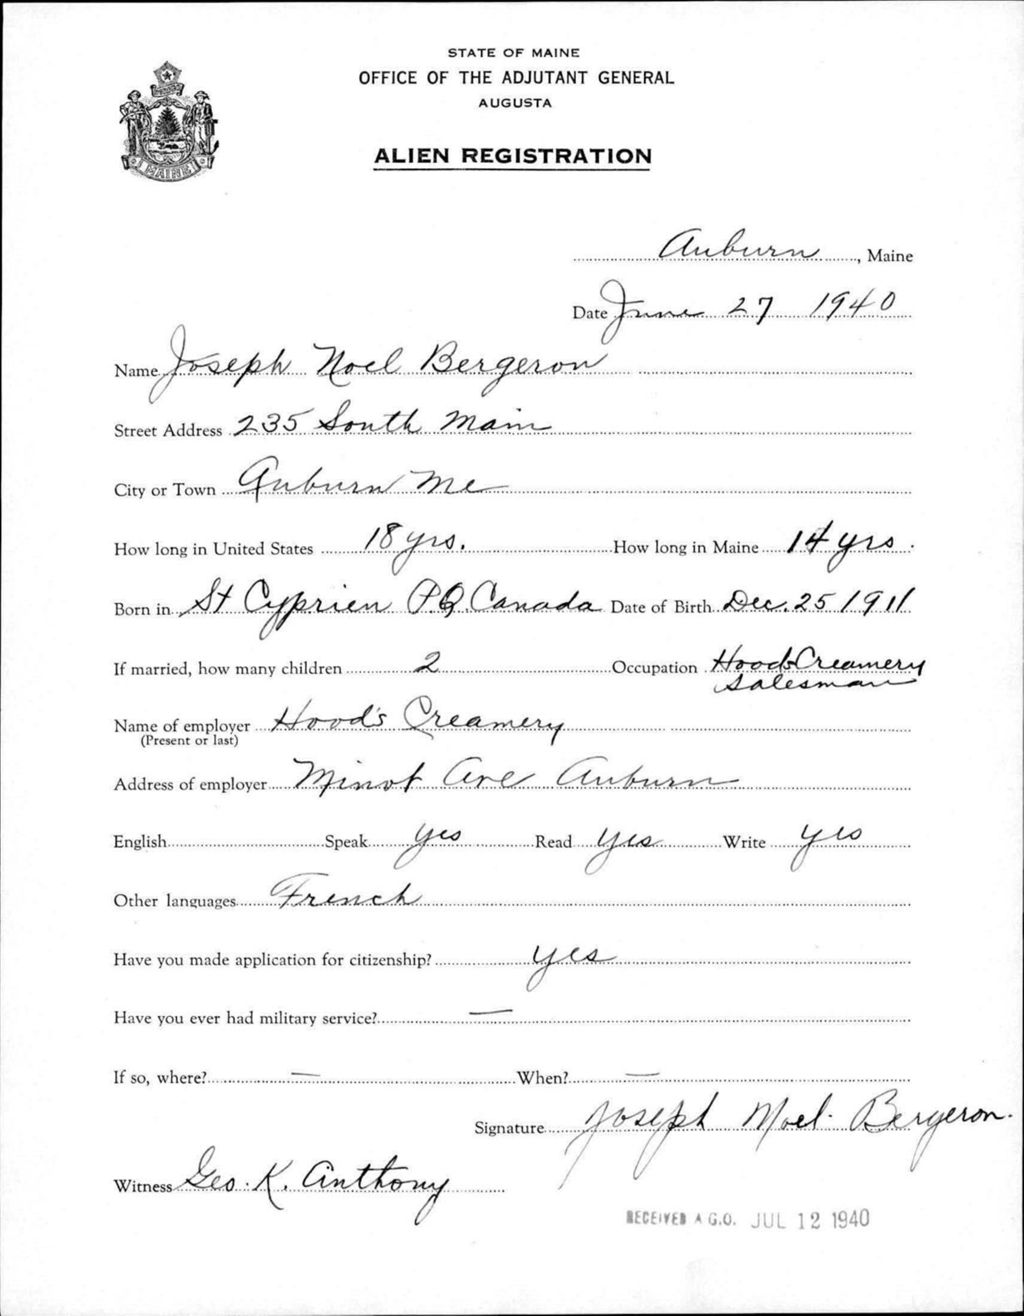 STATE OF MAINE
OFFICE OF THE ADJUTANT GENERAL
AUGUSTA
MAINE
ALIEN REGISTRATION
Auburn, Maine
Date June 27 1940
Name Joseph Noel Bergeron
Street Address 235 South Main
City or Town Auburn Me
How long in United States 18 yrs. How long in Maine 14 yrs.
Born in St Cyprien P.Q. Canada Date of Birth Dec. 25 1911
If married, how many children 2 Occupation Hoods Creamery
Salesman
Name of employer Hood's Creamery
(Present or last)
Address of employer Minot Ave Auburn
English Speak yes Read yes Write yes
Other languages French
Have you made application for citizenship? yes
Have you ever had military service? —
If so, where? — When? —
Signature Joseph Noel Bergeron.
Witness Geo. K. Anthony
RECEIVED A.G.O. JUL 12 1940